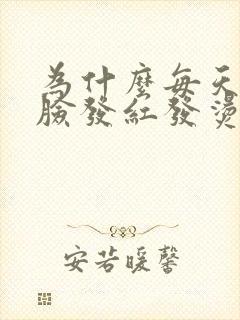 為什麼每天
臉發紅發燙
安若暖馨